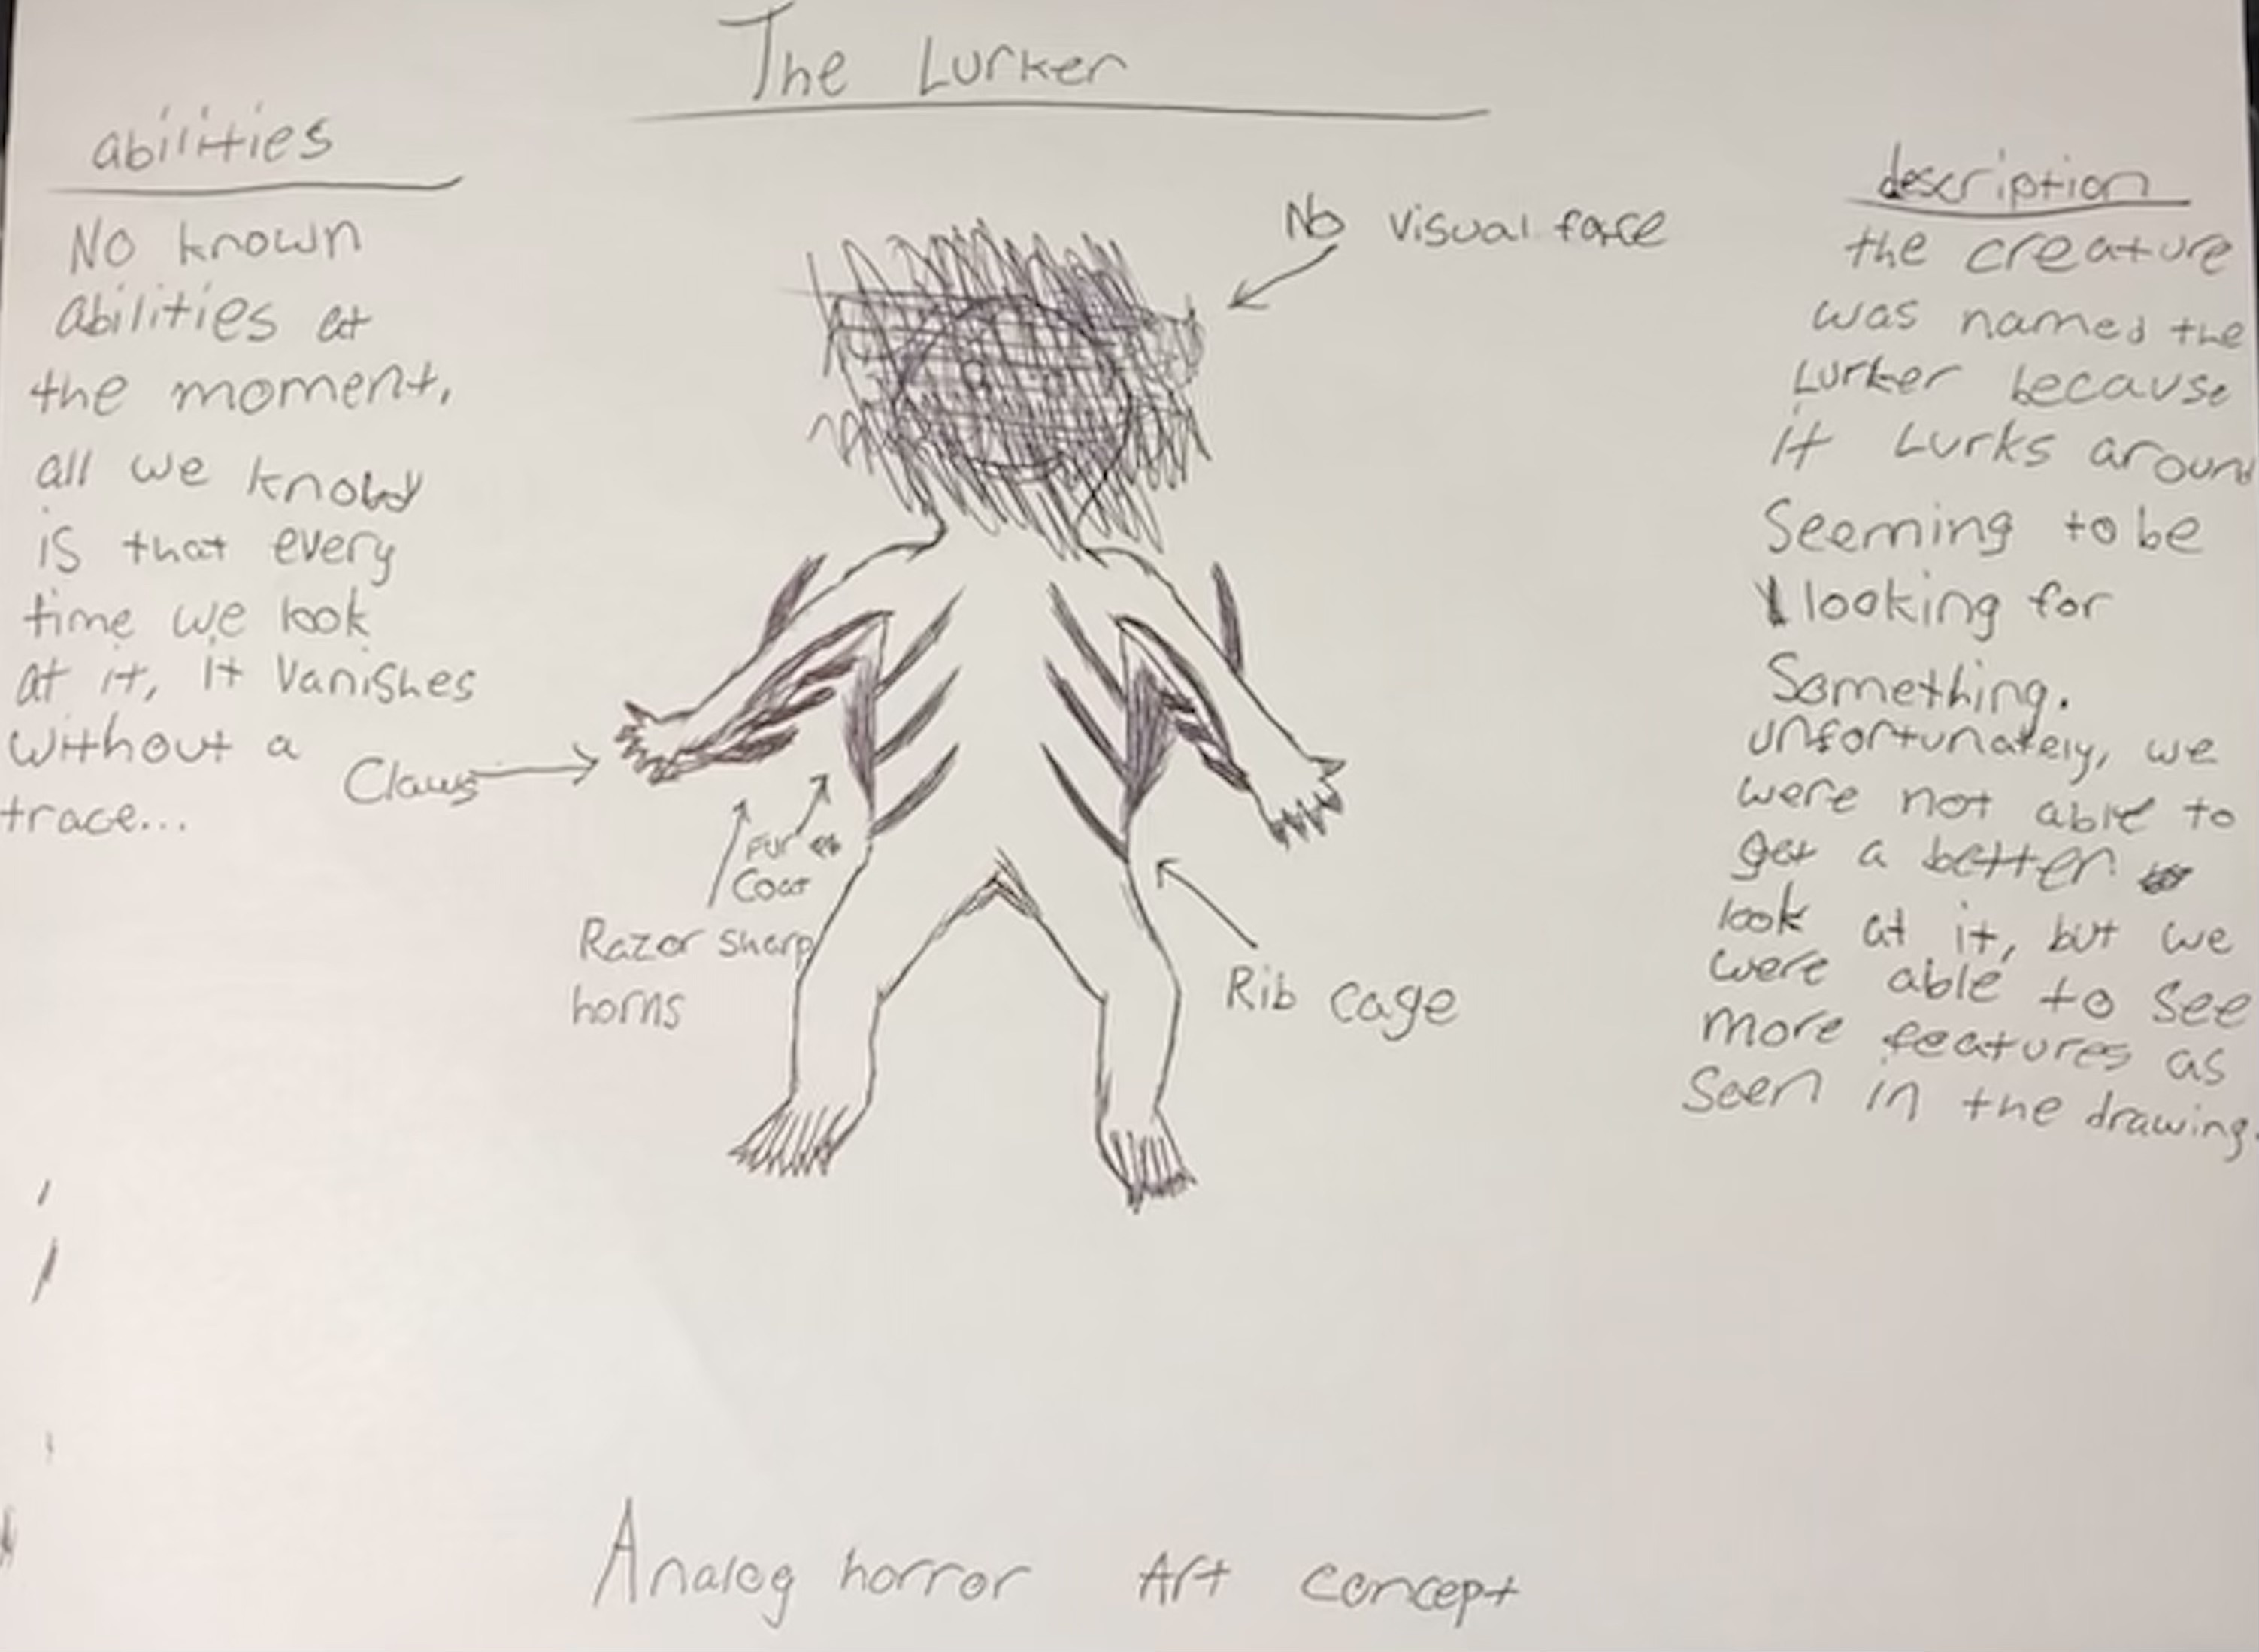 The Lurker
abilities
No known
abilities at
the moment,
all we know
is that every
time we look
at it, it vanishes
without a
trace...
No visual face
Claws
Fur
Coat
Razor sharp
horns
Rib cage
description
the creature
was named the
Lurker because
it Lurks around
Seeming to be
looking for
Something.
unfortunately, we
were not able to
get a better
look at it, but we
were able to see
more features as
seen in the drawing.
Analog horror Art concept